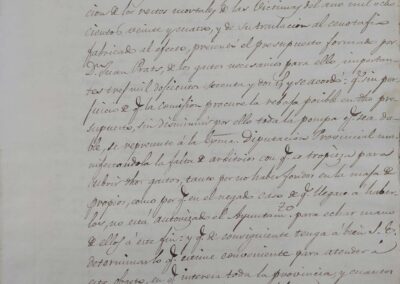 cion de los restos mortales de las Victimas del año mil ocho
cientos veinte y cuatro, y de su traslacion al cenotafio
fabricado al efecto, presentó el presupuesto formado por
D. Juan Prats, de los gastos necesarios para ello, importan
tes tres mil doscientos sesenta y dos r.^s y se acordó: q.^e sin per
juicio de q.^e la comision procure la rebaja posible en dho pre
supuesto, sin disminuir por ello toda la pompa q.^e sea da
ble, se represente á la Excma. Diputacion Provincial ma
nifestandola la falta de arbitrios con q.^e se tropieza para
cubrir dhos gastos, tanto por no haber fondos en la masa de
propios, como por q.^e en el negado caso de q.^e llegara á haber
los, no está autorizado el Ayuntam.^to para echar mano
de ellos á este fin; y q.^e de consiguiente tenga á bien S. E.
determinar lo q.^e estime conveniente para atender á
este obgeto, en q.^e interesa toda la provincia, y cuantos